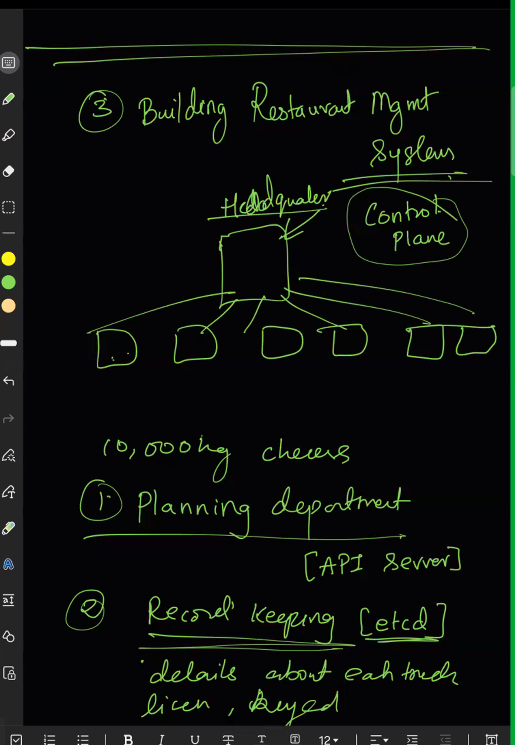 ③ Building Restaurant Mgmt
System
Headquater
Control
plane
10,000kg cheese
① Planning department
[API Server]
② Record Keeping [etcd]
details about each truck
licen,
B I U T T 12